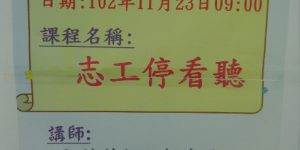 日期:102年11月23日09:00
課程名稱:
志工停看聽
講師: